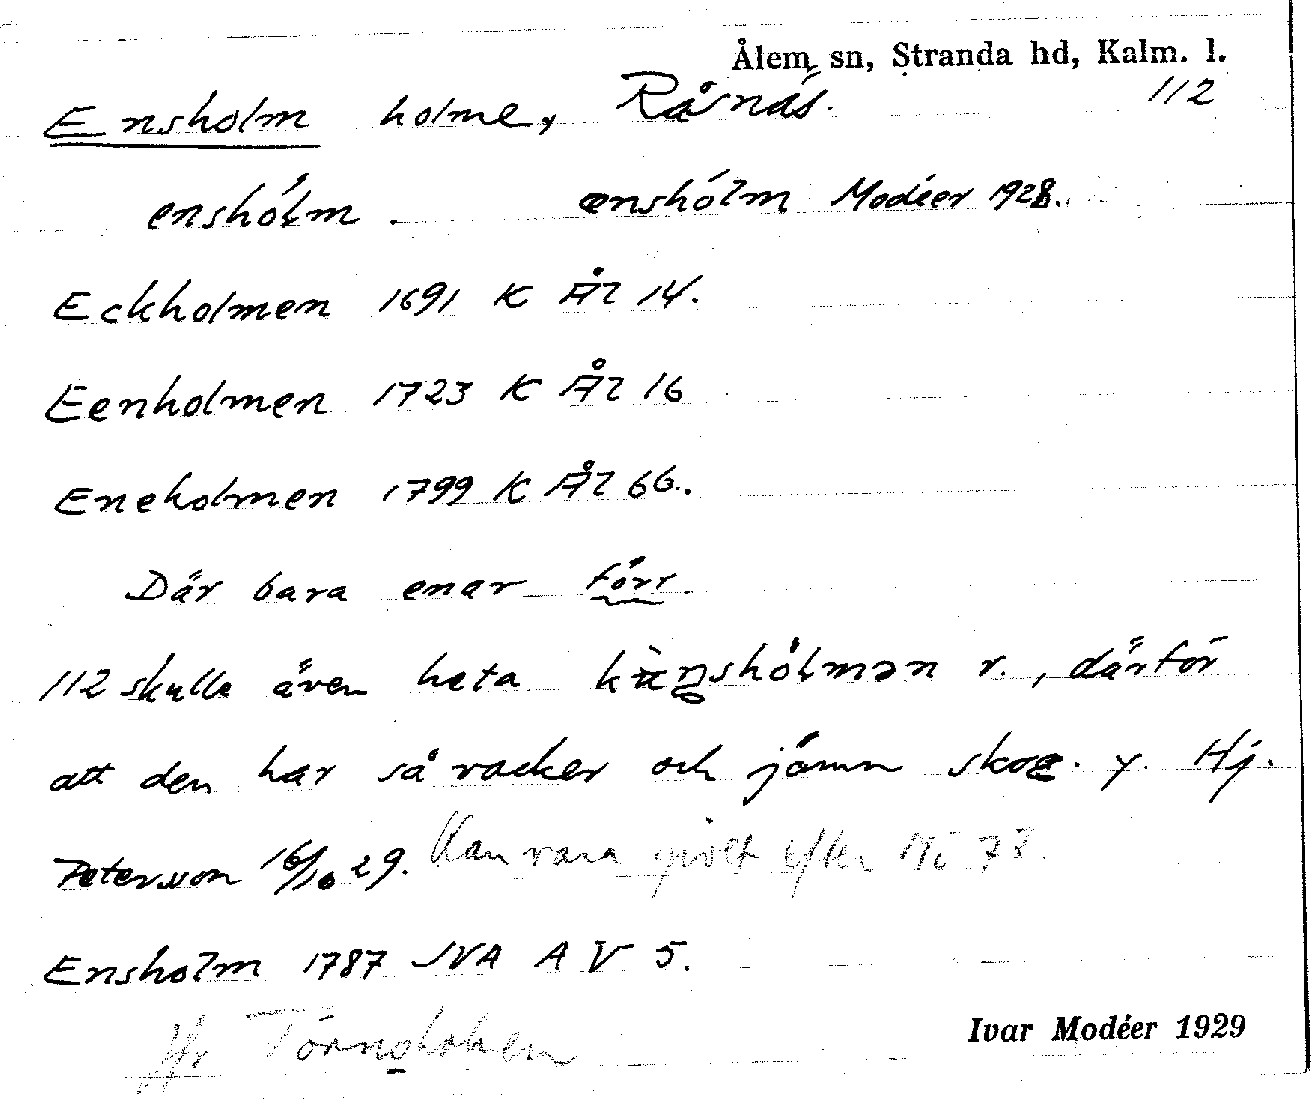 Ålem sn, Stranda hd, Kalm. l.
Ensholm holme, Råsnäs. 112
enshólm. ænshólm Modéer 1928.
Eckholmen 1691 K Ål 14.
Eenholmen 1723 K Ål 16
Eneholmen 1799 K Ål 66.
Där bara enar förr.
112 skulle även heta r., därför
att den har så vacker och jämn skog. y. Hj.
Petersson 16/10 29. Kan vara givet efter Nr 73.
Ensholm 1787 JVA A V 5.
Jfr
Ivar Modéer 1929